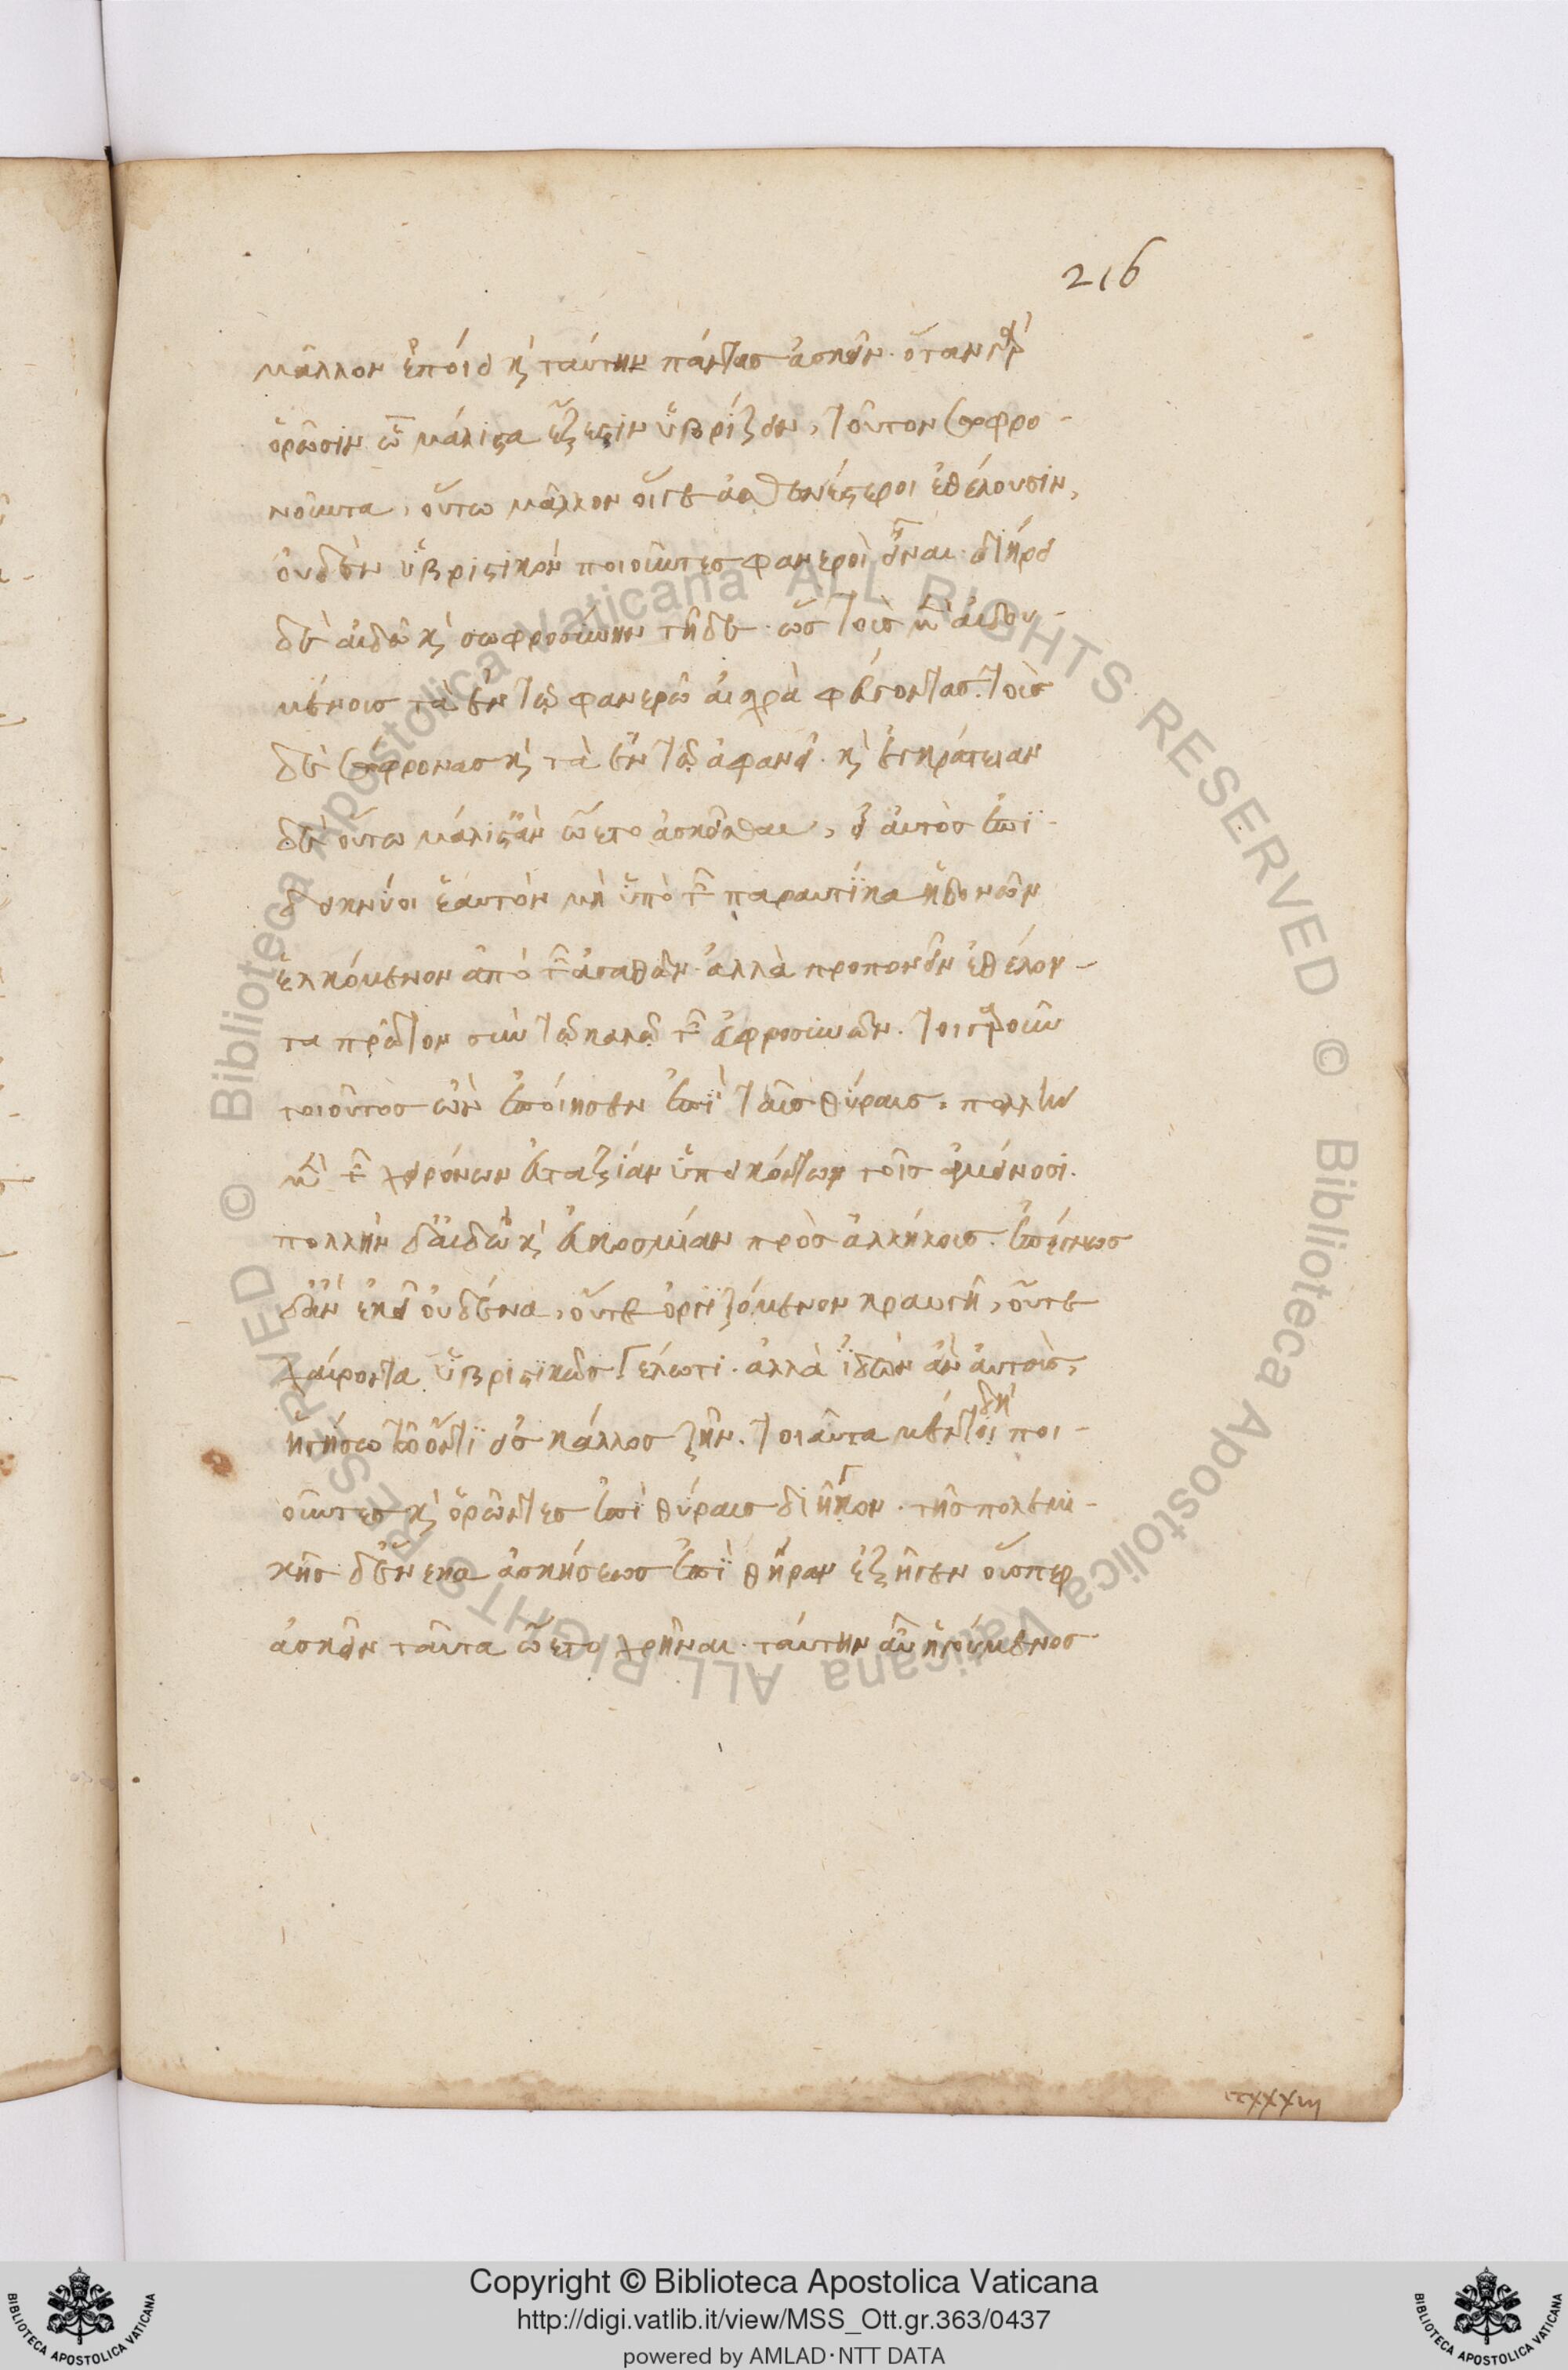 216
μᾶλλον ἐποίει καὶ ταύτην πάντας ἀσκεῖν. ὅταν γὰρ
ὁρῶσιν ᾧ μάλιστα ἔξεστιν ὑβρίζειν, τοῦτον σωφρο-
νοῦντα, οὕτω μᾶλλον οἵγε ἀσθενέστεροι ἐθέλουσιν,
οὐδὲν ὑβριστικὸν ποιοῦντες φανεροὶ εἶναι. διήρει
δὲ αἰδῶ καὶ σωφροσύνην τῇδε. ὡς τοὺς μὲν αἰδου-
μένους τὰ ἐν τῷ φανερῷ αἰσχρὰ φεύγοντας. τοὺς
δὲ σώφρονας καὶ τὰ ἐν τῷ ἀφανεῖ. καὶ ἐγκράτειαν
δὲ οὕτω μάλιστ' ἂν ᾤετο ἀσκεῖσθαι, εἰ αὐτὸς ἐπι-
δεικνύοι ἑαυτὸν μὴ ὑπὸ τῶν παραυτίκα ἡδονῶν
ἑλκόμενον ἀπὸ τῶν ἀγαθῶν. ἀλλὰ προπονεῖν ἐθέλον-
τα πρῶτον σὺν τῷ καλῷ τῶν εὐφροσυνῶν. τοιγαροῦν
τοιοῦτος ὢν ἐποίησεν ἐπὶ ταῖς θύραις. πολλὴν
μὲν τῶν χειρόνων εὐταξίαν ὑπεικόντων τοῖς ἀμείνοσι.
πολλὴν δ' αἰδῶ καὶ εὐκοσμίαν πρὸς ἀλλήλους. ἐπέγνως
δ' ἂν ἐκεῖ οὐδένα, οὔτε ὀργιζόμενον κραυγῇ, οὔτε
χαίροντα ὑβριστικῶς γέλωτι. ἀλλὰ ἰδὼν ἂν αὐτοὺς,
ἡγήσω τῷ ὄντι εἰς κάλλος ζῆν. τοιαῦτα μὲν δὴ τοι ποι-
οῦντες καὶ ὁρῶντες ἐπὶ θύραις διῆγον. τῆς πολεμι-
κῆς δ' ἕνεκα ἀσκήσεως ἐπὶ θήραν ἐξῆγεν οὕσπερ
ἀσκεῖν ταῦτα ᾤετο χρῆναι. ταύτην αὖ ἡγούμενος
Copyright © Biblioteca Apostolica Vaticana
http://digi.vatlib.it/view/MSS_Ott.gr.363/0437
powered by AMLAD·NTT DATA